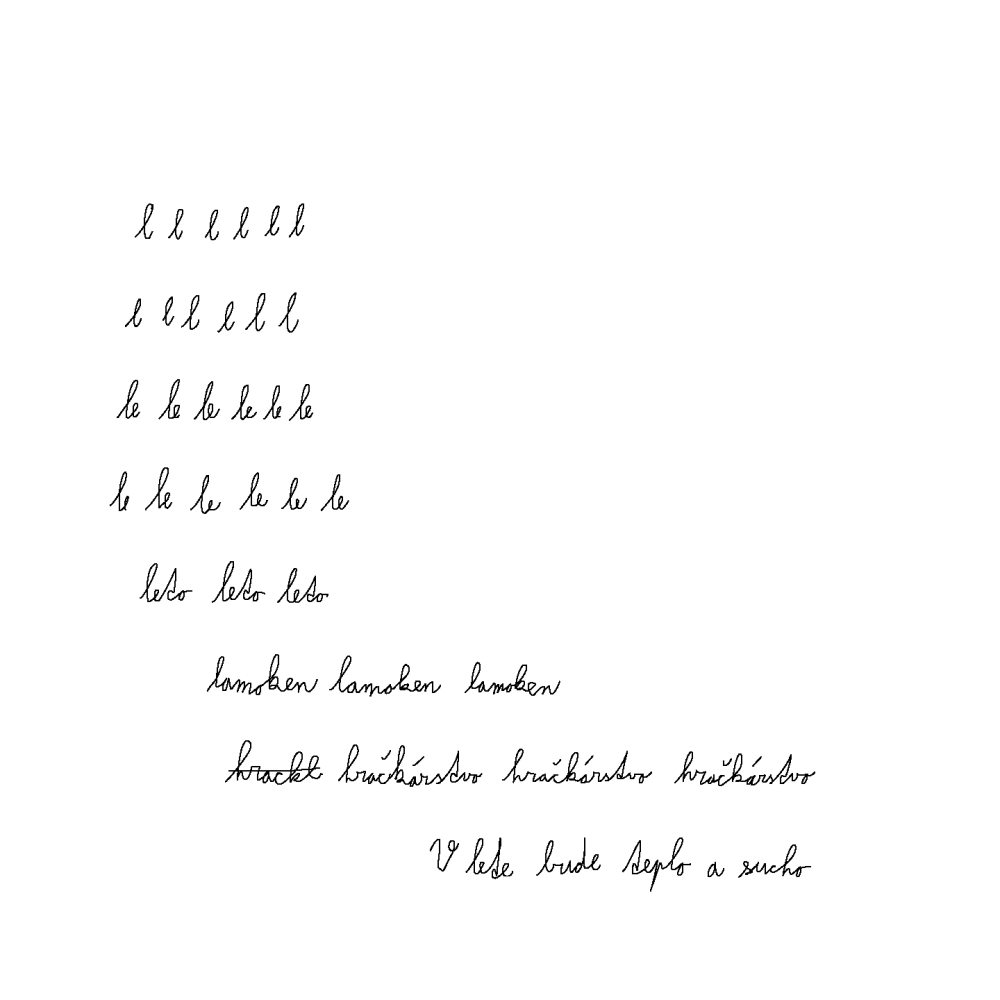 l l l l l l
l l l l l l
le le le le le le
le le le le le le
leto leto leto
lamoken lamoken lamoken
hrackt hračkárstvo hračkárstvo hračkárstvo
V lete bude teplo a sucho